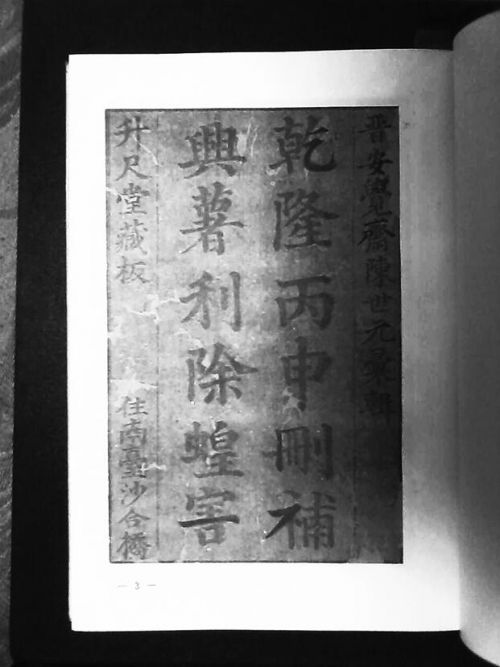 晋安覺齋陳世元彙輯
乾隆丙申刪補
興薯利除蝗害
升尺堂藏板 住南臺沙合橋
— 3 —